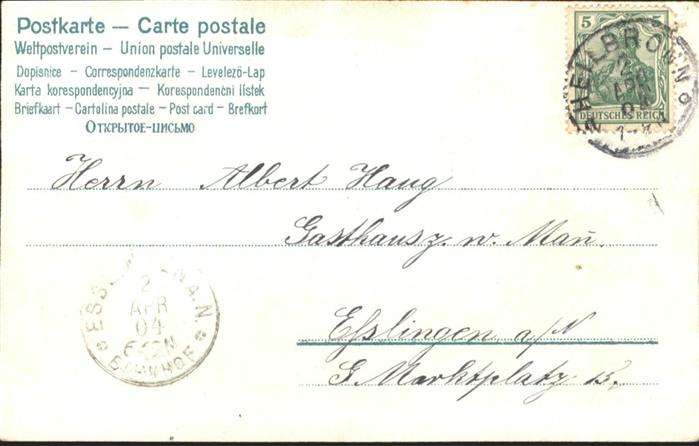 Postkarte — Carte postale
Weltpostverein — Union postale Universelle
Dopisnice - Correspondenzkarte - Levelező-Lap
Karta korespondencyjna - Korespondenčni lístek
Briefkaart - Cartolina postale - Post card - Brefkort
Открытое-письмо
5 5
DEUTSCHES REICH
HEILBRONN
2 APR 04
Herrn Albert Haug
Gasthaus z. w. Mañ.
Esslingen a/N
G. Marktplatz 15.
ESSLINGEN A.N.
2
APR
04
BAHNHOF